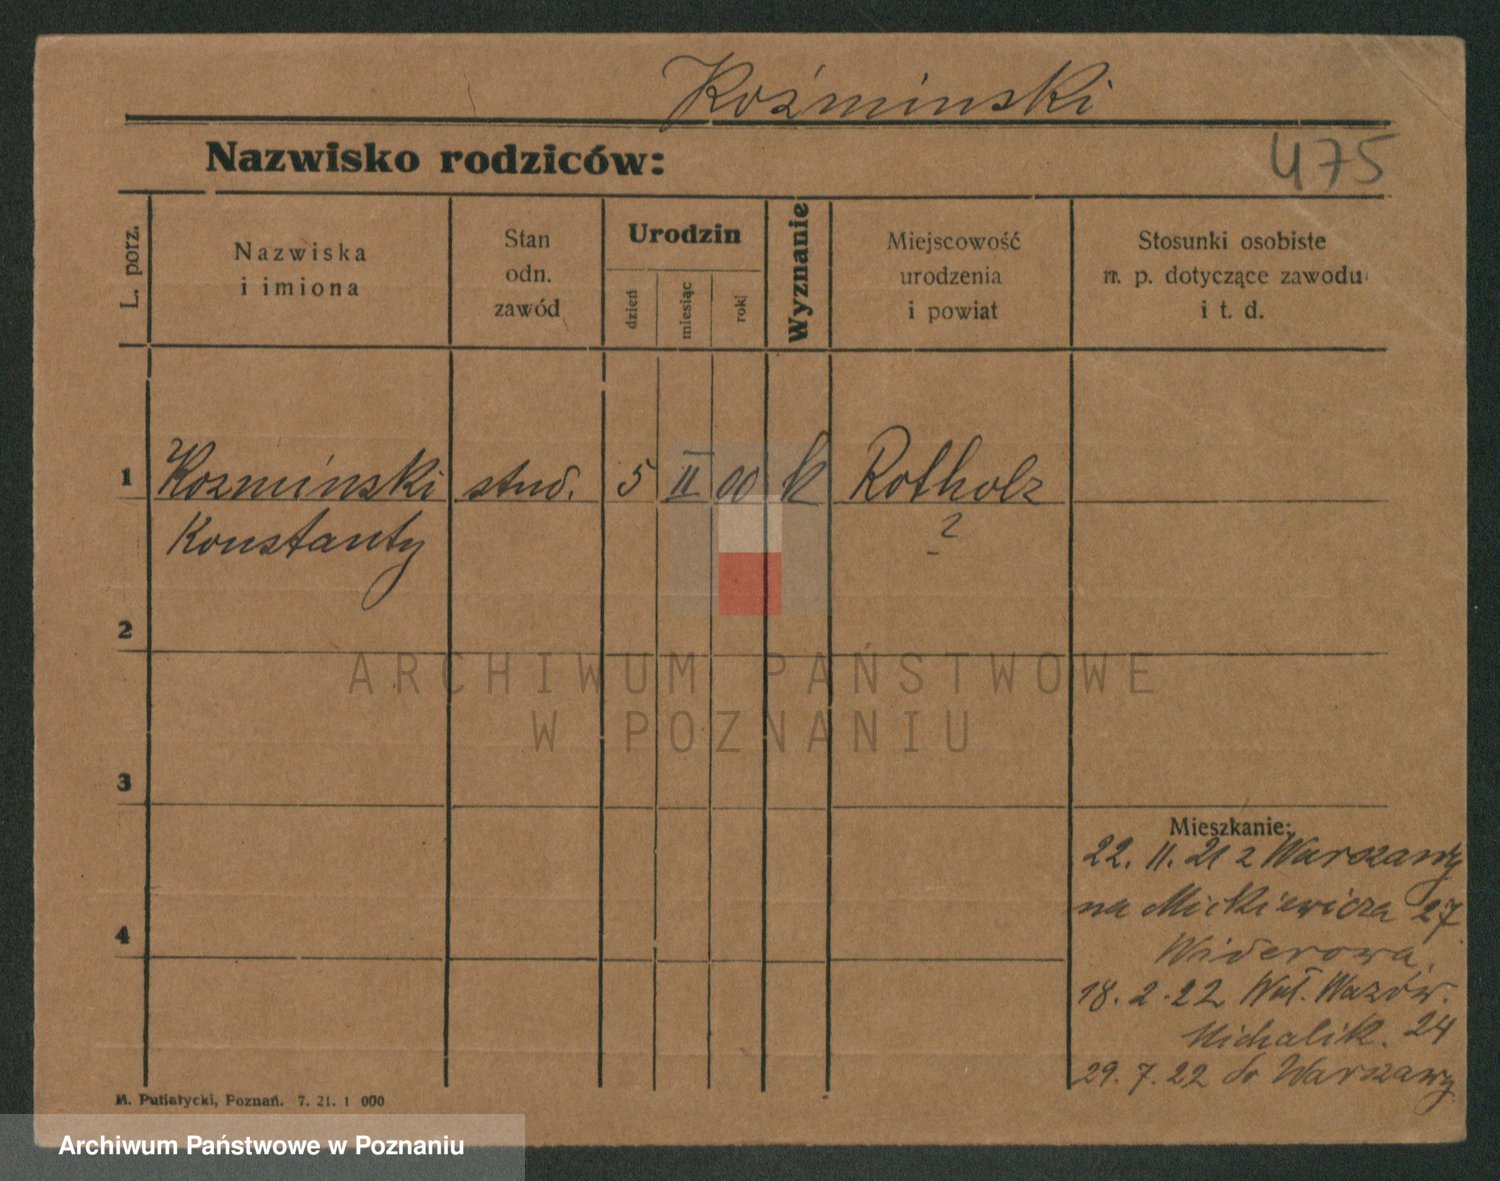 Koźminski
Nazwisko rodziców:
475
L. porz.
Nazwiska
i imiona
Stan
odn.
zawód
Urodzin
dzień
miesiąc
rok
Wyznanie
Miejscowość
urodzenia
i powiat
Stosunki osobiste
m. p. dotyczące zawodu
i t. d.
1 Kozmínski stud. 5 II 00 k Rotholz
Konstanty ?
2
ARCHIWUM PAŃSTWOWE
W POZNANIU
3
Mieszkanie:
22. 11. 21 z Warszawy
na Mickiewicza 27
Widerowa.
4
18. 2. 22 Wał. Wazów.
Michalik. 24
29. 7. 22 do Warszawy
M. Putiatycki, Poznań. 7. 21. 1 000
Archiwum Państwowe w Poznaniu